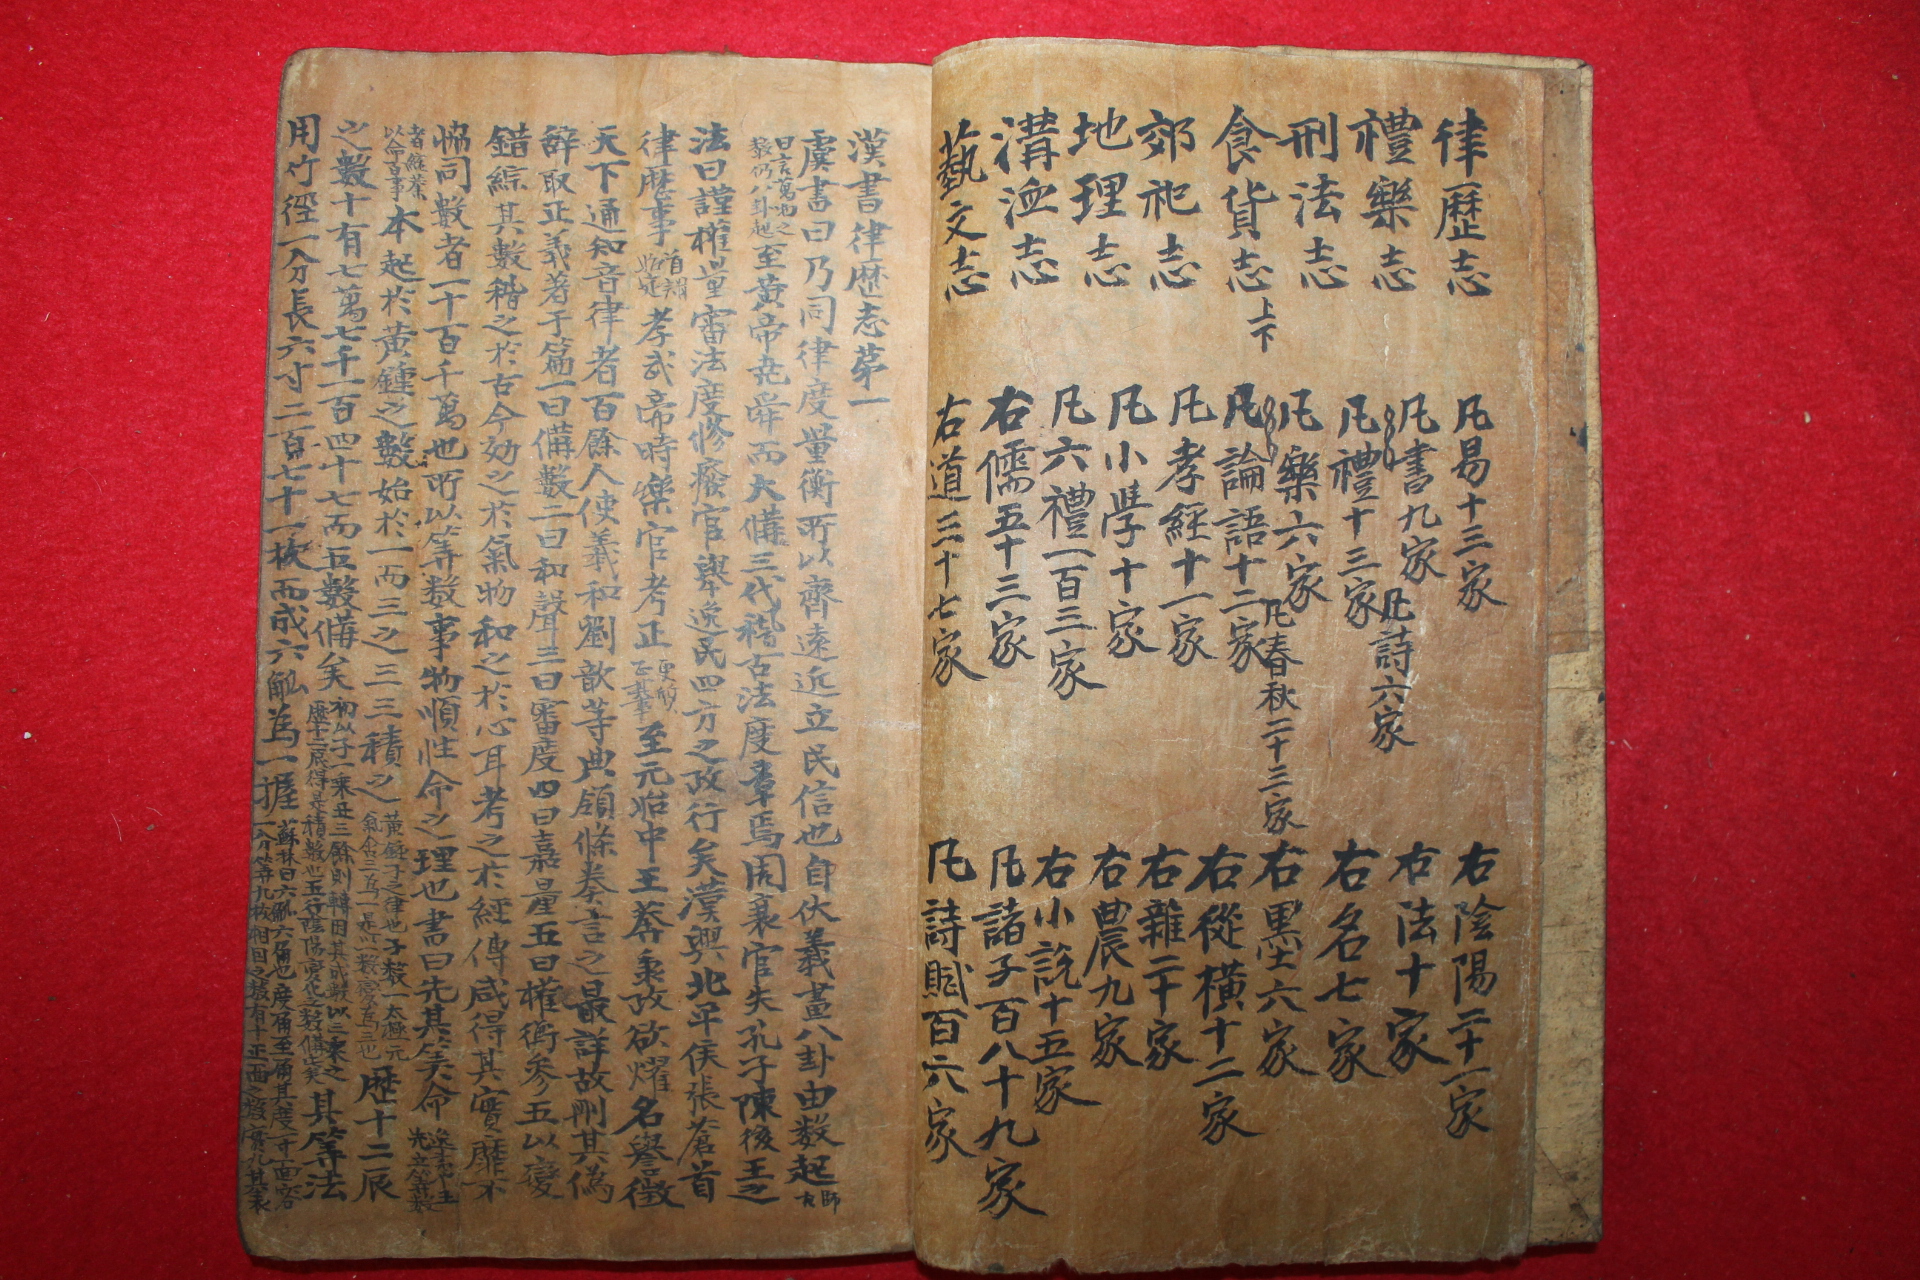 律歷志
禮樂志
刑法志
食貨志上下
郊祀志
地理志
溝洫志
藝文志
凡易十三家
凡書九家
凡詩六家
凡禮十三家
凡樂六家
凡春秋二十三家
凡論語十二家
凡孝經十一家
凡小學十家
凡六禮一百三家
右儒五十三家
右道三十七家
右陰陽二十一家
右法十家
右名七家
右黑六家
右從橫十二家
右雜二十家
右農九家
右小說十五家
凡諸子百八十九家
凡詩賦百六家
漢書律歷志第一
虞書曰乃同律度量衡所以齊遠近立民信也自伏羲畫八卦由數起師古
曰言萬物之數仍八卦起至黃帝堯舜而大備三代稽古法度章焉周衰官失孔子陳後王之
法曰謹權量審法度修廢官舉逸民四方之政行矣漢興北平侯張蒼首
律歷事孝武帝時樂官考正至元始中王莽秉政欲燿名譽徵
天下通知音律者百餘人使羲和劉歆等典領條奏言之最詳故刪其僞
辭取正義著于篇一曰備數二曰和聲三曰審度四曰嘉量五曰權衡參五以變
錯綜其數稽之於古今効之於氣物和之於心耳考之於經傳咸得其實靡不
恊同數者一十百千萬也所以筭數事物順性命之理也書曰先其筭命
本起於黃鍾之數始於一而三之三三積之黃鍾子之律也子數一太極元氣含三爲一是以一數變爲三也歷十二辰
之數十有七萬七千一百四十七而五數備矣初以子一乘丑三餘則轉因其成數以三乘之歷十二辰得是積數也五行陰陽變化之數備矣其筭法
用竹徑一分長六寸二百七十一枚而成六觚爲一握